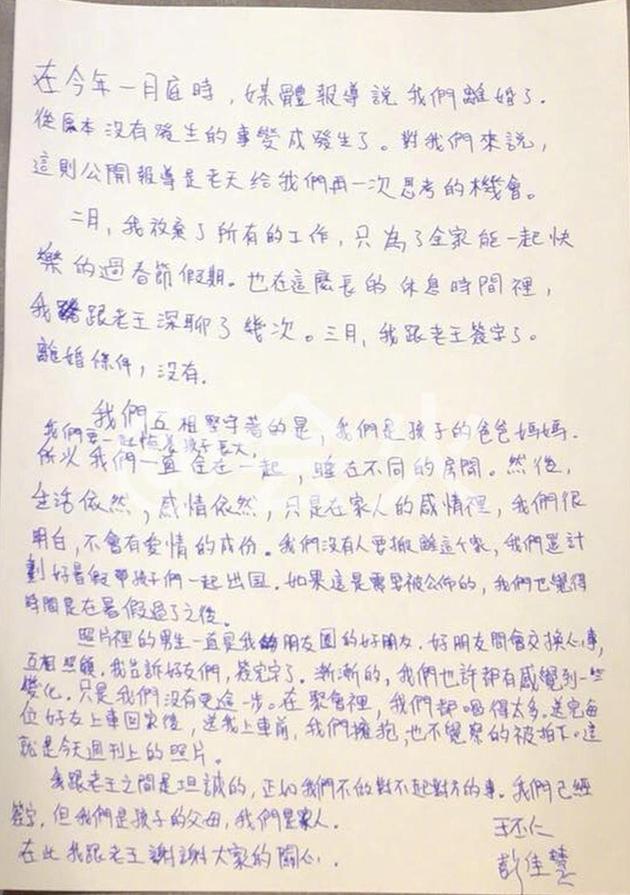 在今年一月底時，媒體報導說我們離婚了.
從原本沒有發生的事變成發生了。對我們來說，
這則公開報導是老天給我們再一次思考的機會。
二月，我放棄了所有的工作，只為了全家能一起快
樂的過春節假期。也在這麼長的休息時間裡，
我跟老王深聊了幾次。三月，我跟老王簽字了。
離婚條件，沒有.
我們互相堅守著的是，我們是孩子的爸爸媽媽.
我們要一起陪著孩子長大，
所以我們一直住在一起，睡在不同的房間。然後，
生活依然，感情依然，只是在家人的感情裡，我們很
明白，不會有愛情的成份。我們沒有人要搬離這個家，我們還計
劃好暑假帶孩子們一起出國。如果這是需要被公佈的，我們也覺得
時間是在暑假過了之後。
照片裡的男生一直是我朋友圈的好朋友。好朋友間會交換心事，
互相照顧，我告訴好友們，簽完字了。漸漸的，我們也許都有感覺到一些
變化。只是我們沒有更進一步。在聚會裡，我們都喝得太多。送完每
位好友上車回家後，送我上車前，我們擁抱，也不覺察的被拍下。這
就是今天週刊上的照片。
我跟老王之間是坦誠的，正如我們不做對不起對方的事。我們已經
簽字，但我們是孩子的父母，我們是家人.
王丕仁
在此我跟老王謝謝大家的關心.
彭佳慧